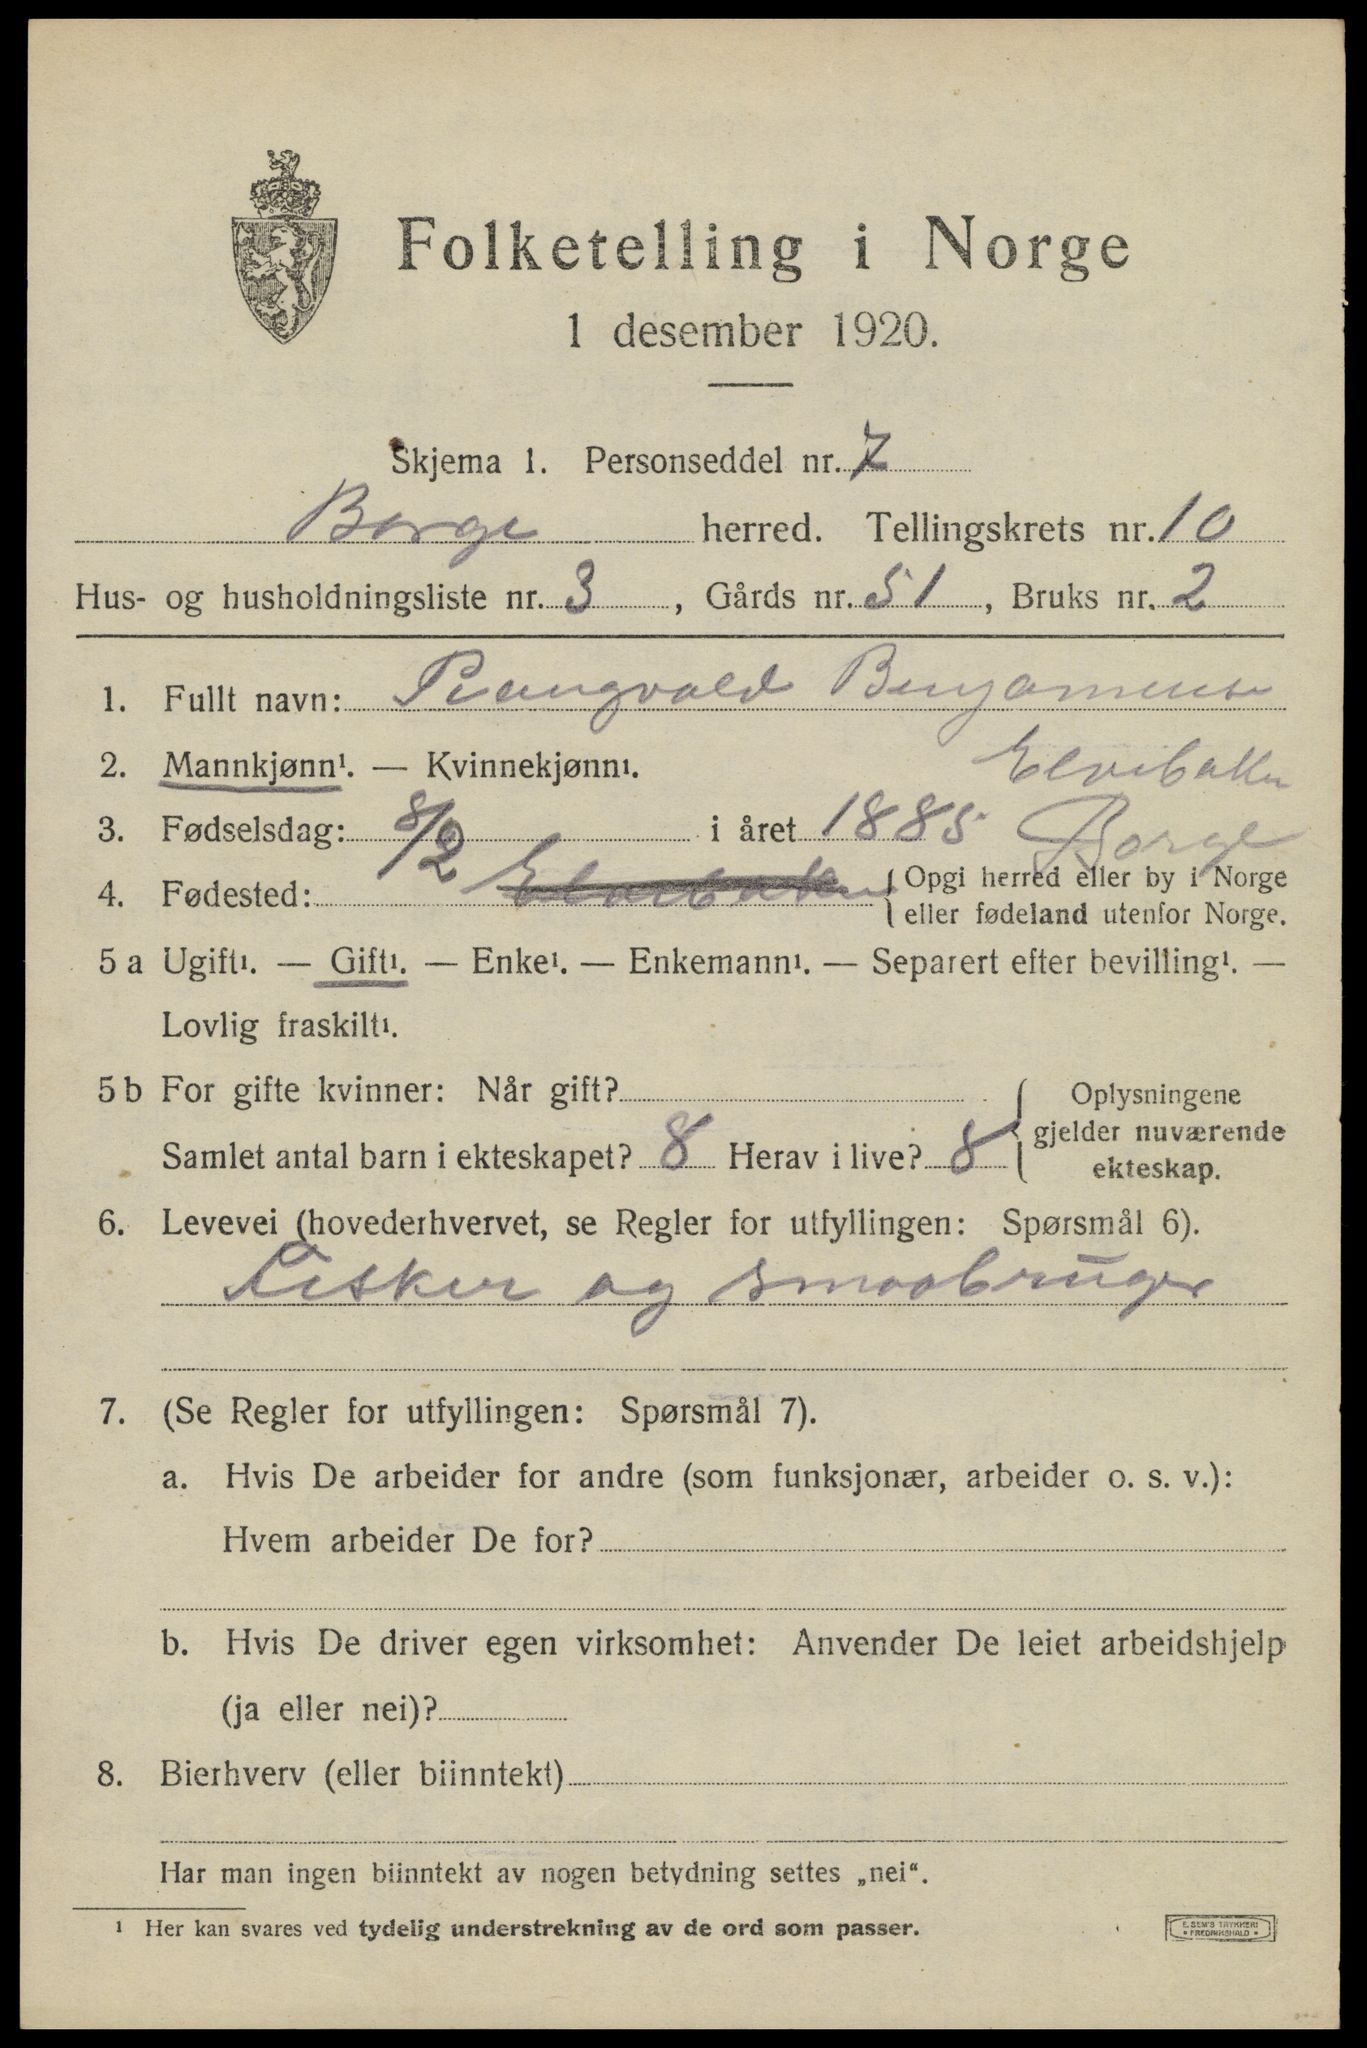 Folketelling i Norge
1 desember 1920.
Skjema 1. Personseddel nr. 7
Borge herred. Tellingskrets nr. 10
Hus- og husholdningsliste nr. 3, Gårds nr. 51, Bruks nr. 2
1. Fullt navn: Rangvald Benjaminsen
2. Mannkjønn¹. — Kvinnekjønn¹. Elvebakken
3. Fødselsdag: 8/2 i året 1885 Borge
4. Fødested: Elvebakken { Opgi herred eller by i Norge
eller fødeland utenfor Norge.
5 a Ugift¹. — Gift¹. — Enke¹. — Enkemann¹. — Separert efter bevilling¹. —
Lovlig fraskilt¹.
5 b For gifte kvinner: Når gift? { Oplysningene
Samlet antal barn i ekteskapet? 8 Herav i live? 8 gjelder nuværende
ekteskap.
6. Levevei (hovederhvervet, se Regler for utfyllingen: Spørsmål 6).
Fisker og smaabruger
7. (Se Regler for utfyllingen: Spørsmål 7).
a. Hvis De arbeider for andre (som funksjonær, arbeider o. s. v.):
Hvem arbeider De for?
b. Hvis De driver egen virksomhet: Anvender De leiet arbeidshjelp
(ja eller nei)?
8. Bierhverv (eller biinntekt)
Har man ingen biinntekt av nogen betydning settes „nei“.
¹ Her kan svares ved tydelig understrekning av de ord som passer.
E. SEM'S TRYKKERI
FREDRIKSHALD